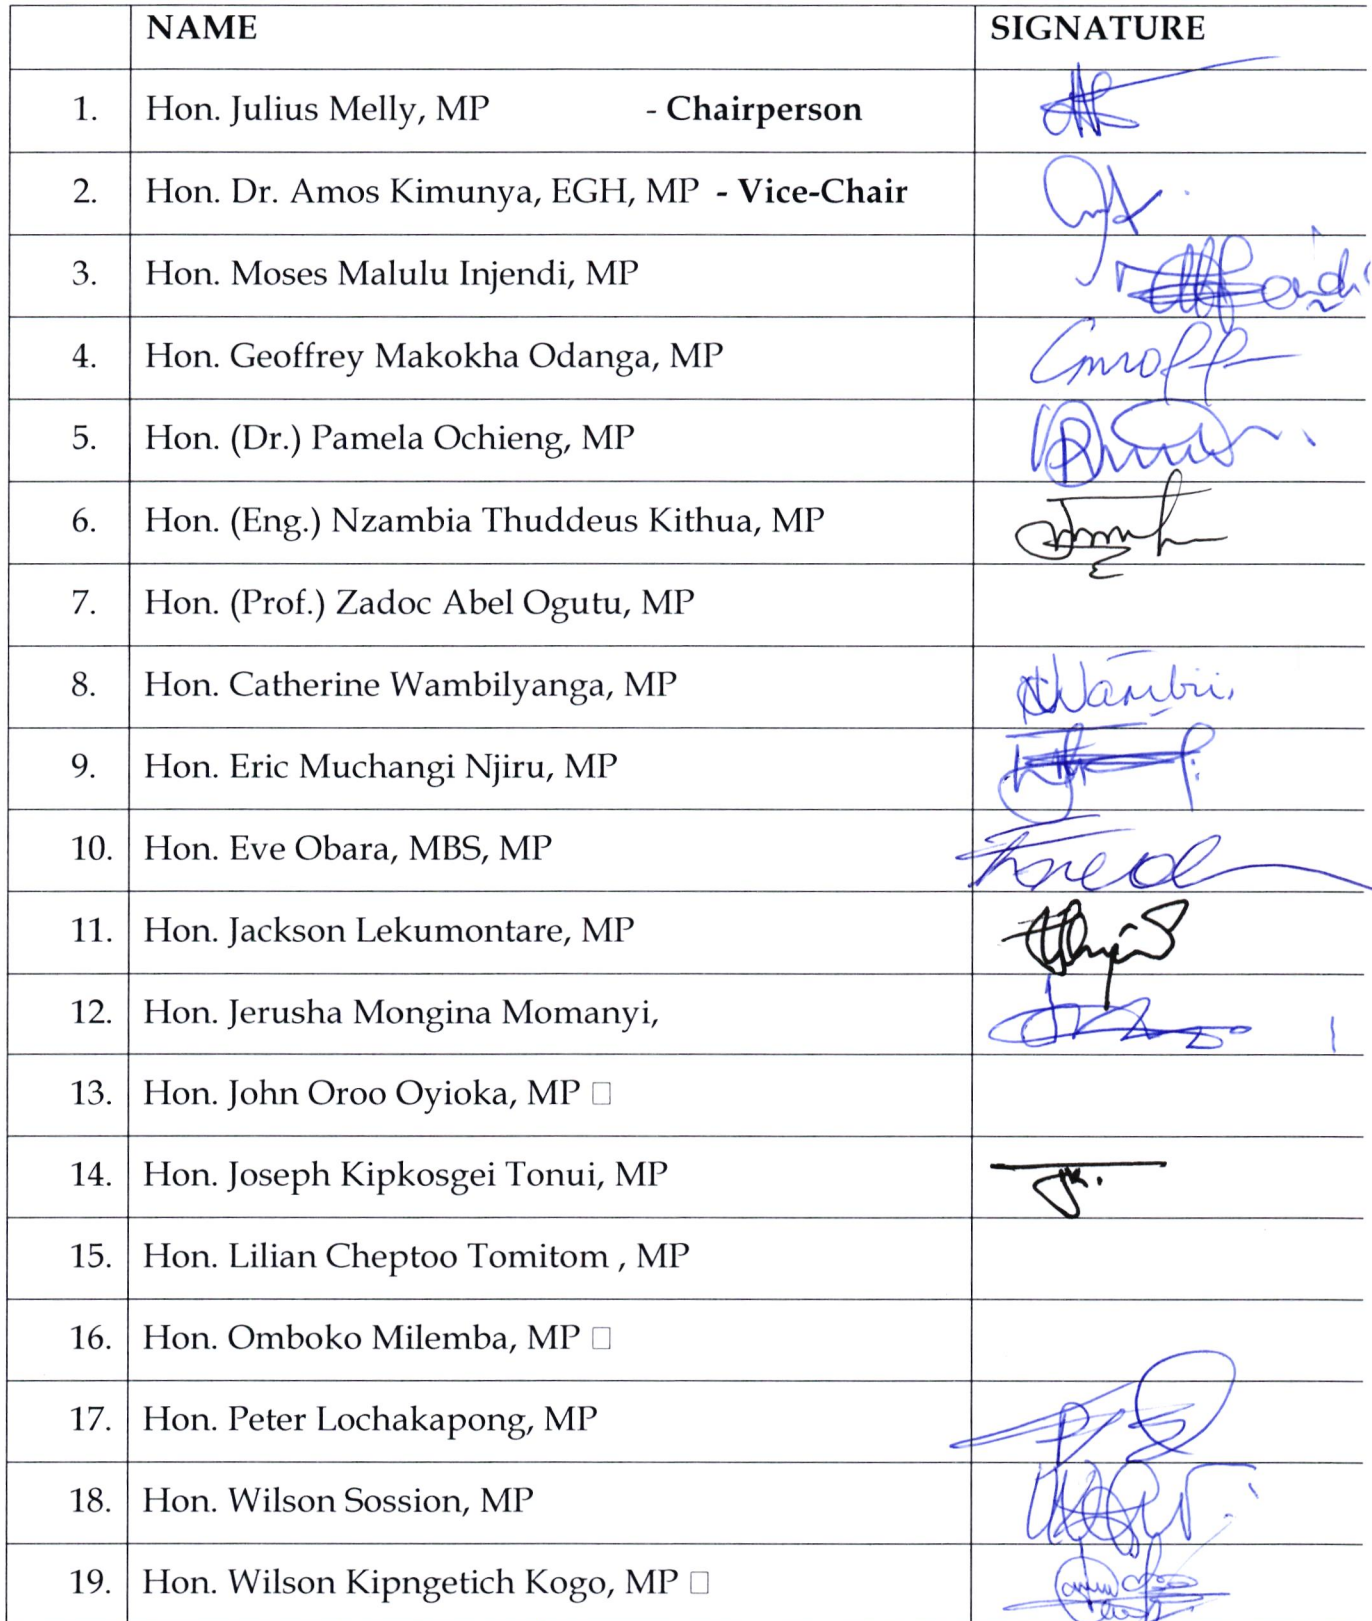 NAME SIGNATURE
1. Hon. Julius Melly, MP - Chairperson
2. Hon. Dr. Amos Kimunya, EGH, MP - Vice-Chair
3. Hon. Moses Malulu Injendi, MP
4. Hon. Geoffrey Makokha Odanga, MP
5. Hon. (Dr.) Pamela Ochieng, MP
6. Hon. (Eng.) Nzambia Thuddeus Kithua, MP
7. Hon. (Prof.) Zadoc Abel Ogutu, MP
8. Hon. Catherine Wambilyanga, MP
9. Hon. Eric Muchangi Njiru, MP
10. Hon. Eve Obara, MBS, MP
11. Hon. Jackson Lekumontare, MP
12. Hon. Jerusha Mongina Momanyi,
13. Hon. John Oroo Oyioka, MP □
14. Hon. Joseph Kipkosgei Tonui, MP
15. Hon. Lilian Cheptoo Tomitom , MP
16. Hon. Omboko Milemba, MP □
17. Hon. Peter Lochakapong, MP
18. Hon. Wilson Sossion, MP
19. Hon. Wilson Kipngetich Kogo, MP □